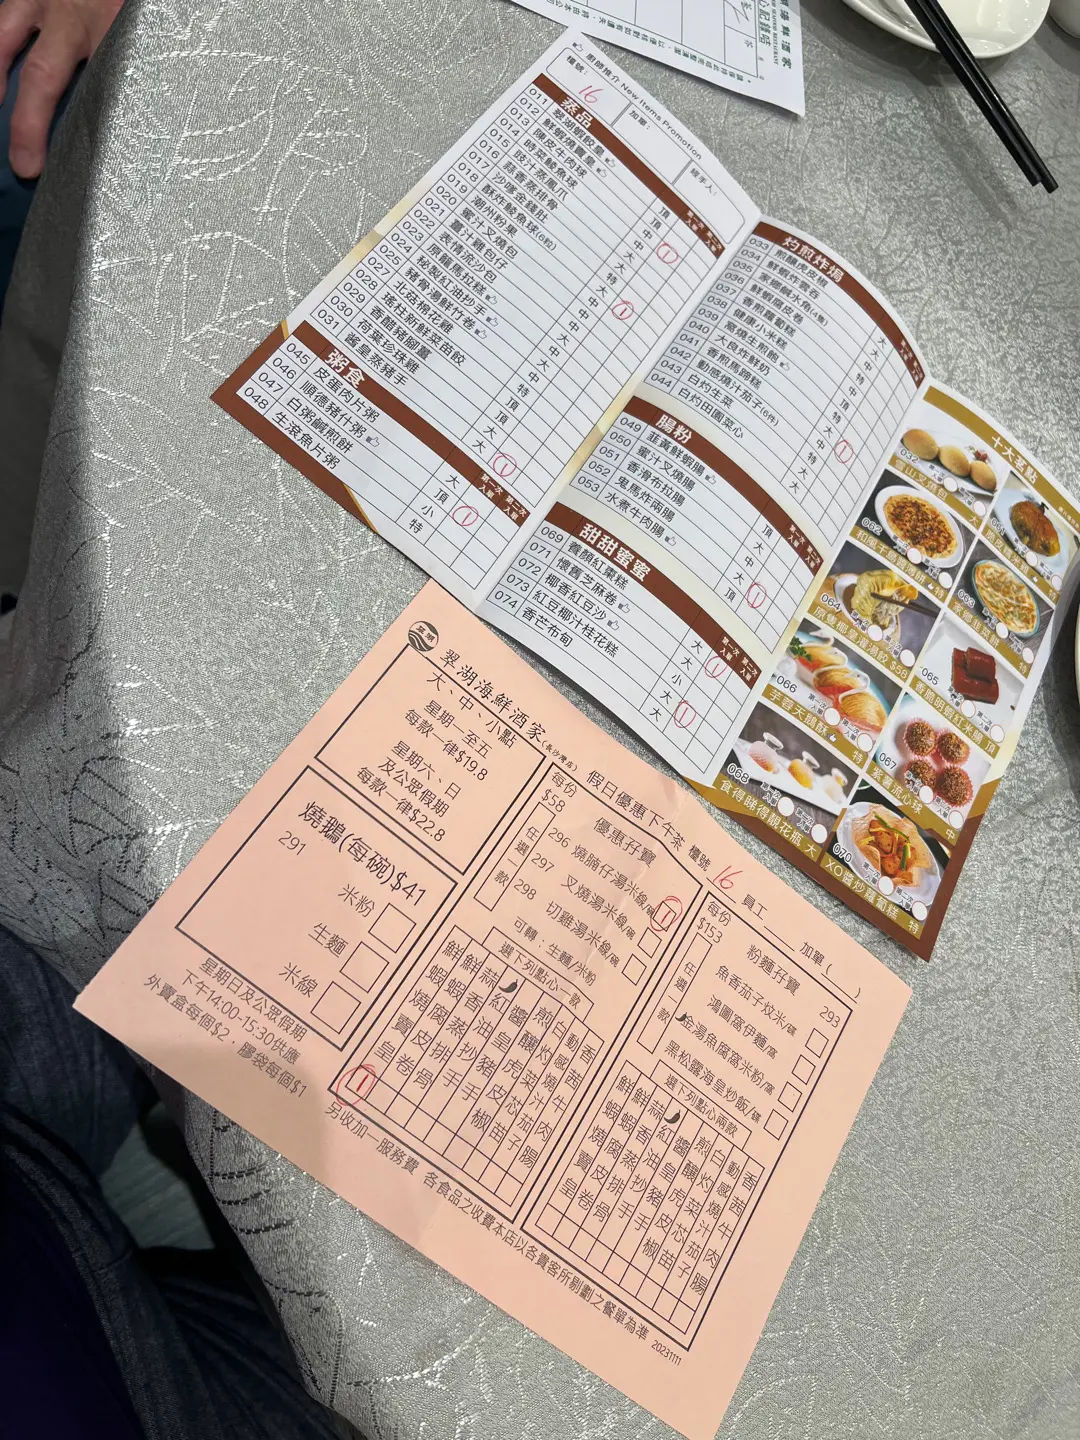 廚師推介 New Items Promotion
檯號：
16
加單：
經手人：
蒸品
第一次入單
第二次入單
011 翠湖蝦餃皇 頂
012 鮮蝦燒賣皇
013 陳皮牛肉球 中
014 時菜鯪魚球
015 豉汁蒸鳳爪
016 蒜香蒸排骨
017 沙嗲金錢肚
018 酥炸鯪魚球(6粒)
019 潮州粉果
020 蜜汁叉燒包
021 薑汁雞包仔
022
023 原籠馬拉糕
024 秘製紅油抄手
025 豬骨湯鮮竹卷
027 北菇棉花雞
028 瑤柱新鮮菜苗餃
029 香醋豬腳薑
030 荷葉珍珠雞
031 醬皇蒸豬手
粥食
第一次入單
第二次入單
045 皮蛋肉片粥 大
046 順德豬什粥 頂
047 白粥鹹煎餅 小
048 生滾魚片粥 特
灼煎炸焗
第一次入單
第二次入單
033 煎釀虎皮椒
034 鮮蝦炸雲吞
035 家鄉鹹水角(4隻)
036 鮮蝦腐皮卷
037 香煎蘿蔔糕
038 健康小米糕
039 窩燒生煎飽
040 大良炸鮮奶
041 香煎馬蹄糕
042 動感燒汁茄子(6件)
043 白灼生菜
044 白灼田園菜心
腸粉
第一次入單
第二次入單
049 韮黃鮮蝦腸 頂
050 蜜汁叉燒腸 大
051 香滑布拉腸 中
052 鬼馬炸兩腸 大
053 水煮牛肉腸
甜甜蜜蜜
第一次入單
第二次入單
069 養顏紅棗糕 大
071 懷舊芝麻卷 大
072 椰香紅豆沙 小
073 紅豆椰汁桂花糕 大
074 香芒布甸 大
十大名點
032 雪山叉燒包 大
061
062
063 家鄉韭菜餅 特
064
065
066 芋蓉天鵝酥 特
067 紫薯流心球 中
068 食得睇得靚花瓶 大
070 XO醬炒蘿蔔糕 特
翠湖
翠湖海鮮酒家(長沙灣店) 假日優惠下午茶 檯號 16 員工 加單( )
大、中、小點
星期一至五
每款一律$19.8
星期六、日
及公眾假期
每款一律$22.8
燒鵝(每碗)$41
291
米粉
生麵
米線
星期日及公眾假期
下午14:00-15:30供應
外賣盒每個$2，膠袋每個$1
每份
$58
優惠孖寶
任選一款
296 燒腩仔湯米線/碗
297 叉燒湯米線/碗
298 切雞湯米線/碗
可轉：生麵/米粉
選下列點心一款
鮮蝦燒賣皇
鮮蝦腐皮卷
蒜香蒸排骨
紅油抄手
醬皇豬手
煎釀虎皮椒
白灼菜芯苗
動感燒汁茄子
香茜牛肉腸
每份
$153
粉麵孖寶
293
任選一款
魚香茄子炆米/碟
鴻圖窩伊麵/窩
金湯魚腐窩米粉/窩
黑松露海皇炒飯/碟
選下列點心兩款
鮮蝦燒賣皇
鮮蝦腐皮卷
蒜香蒸排骨
紅油抄手
醬皇豬手
煎釀虎皮椒
白灼菜芯苗
動感燒汁茄子
香茜牛肉腸
另收加一服務費 各食品之收費本店以各貴客所剔劃之餐單為準 20231111